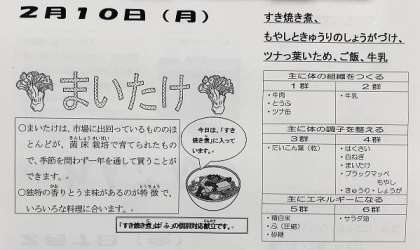 2月10日（月）
すき焼き煮、
もやしときゅうりのしょうがづけ、
ツナっ葉いため、ご飯、牛乳
まいたけ
○まいたけは、市場に出回っているもののほ
とんどが、菌床栽培で育てられたもの
で、季節を問わず一年を通して買うことが
できます。
○独特の香りとうま味があるのが特徴で、
いろいろな料理に合います。
今日は、「すき
焼き煮」に入って
います。
「すき焼き煮」は「ふ」の個別対応献立です。
主に体の組織をつくる
1群 2群
・牛肉 ・牛乳
・とうふ
・ツナ缶
主に体の調子を整える
3群 4群
・だいこん葉（乾） ・はくさい
・白ねぎ
・まいたけ
・ブラックマッペ
もやし
・きゅうり・しょうが
主にエネルギーになる
5群 6群
・精白米 ・サラダ油
・ふ（圧縮）
・砂糖